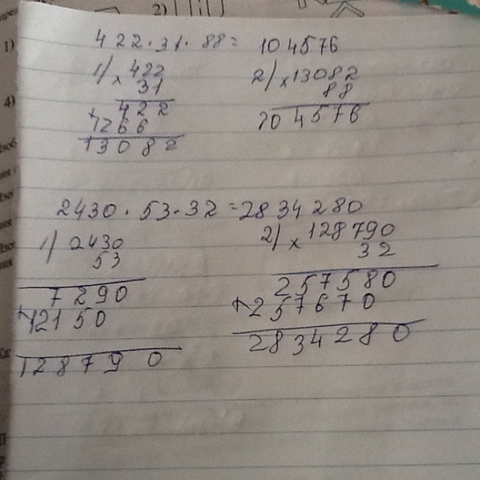 2)
1)
4)
422·31·88= 104576
1) ×422
31
422
+1266
13082
2) ×13082
88
104576
2430·53·32=2834280
1) 2430
53
7290
+12150
128790
2) ×128790
32
257580
+257670
2834280